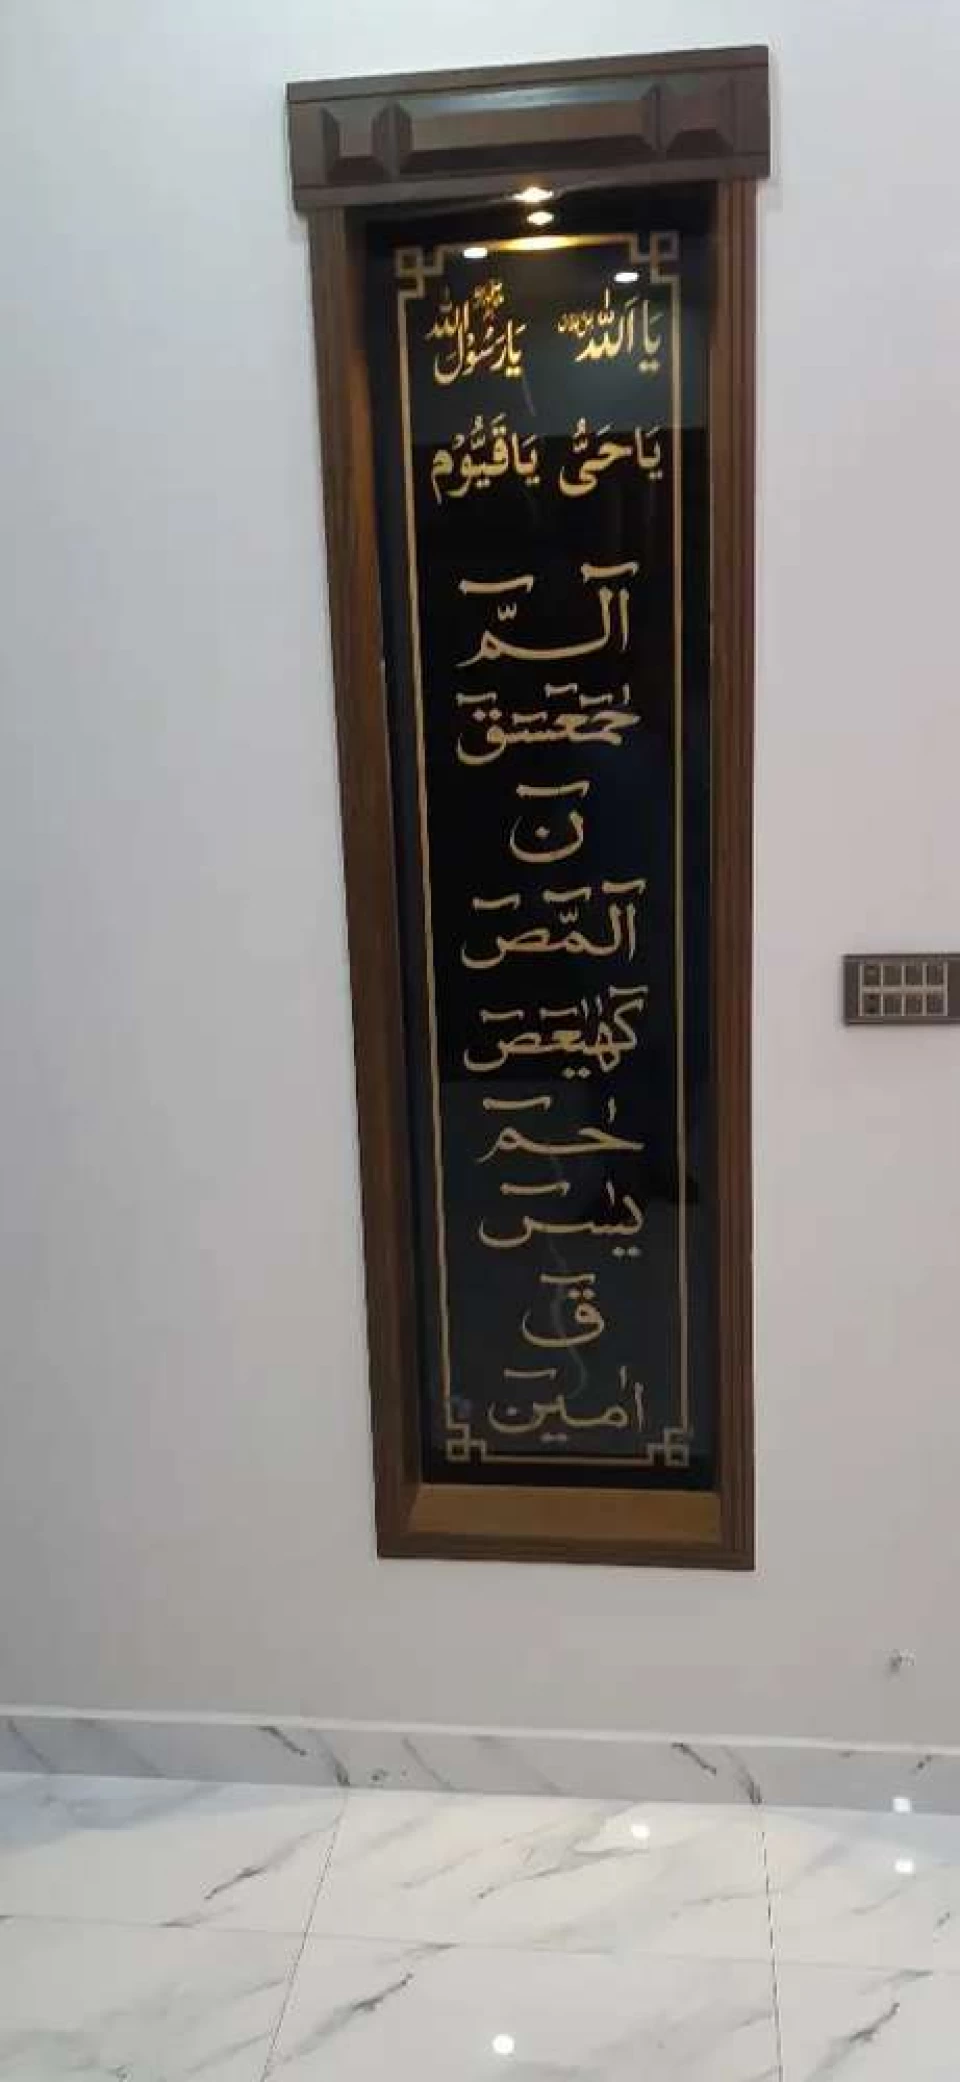 یَا اَللّٰہُ یَارَسُوْلَ اللّٰہ ﷺ
یَاحَیُّ یَاقَیُّوْم
الٓـمّٓ
حٰمٓعٓسٓقٓ
نٓ
الٓمّٓصٓ
کٓھٰیٰعٓصٓ
حٰـمٓ
یٰسٓ
قٓ
اٰمیٓنٓ